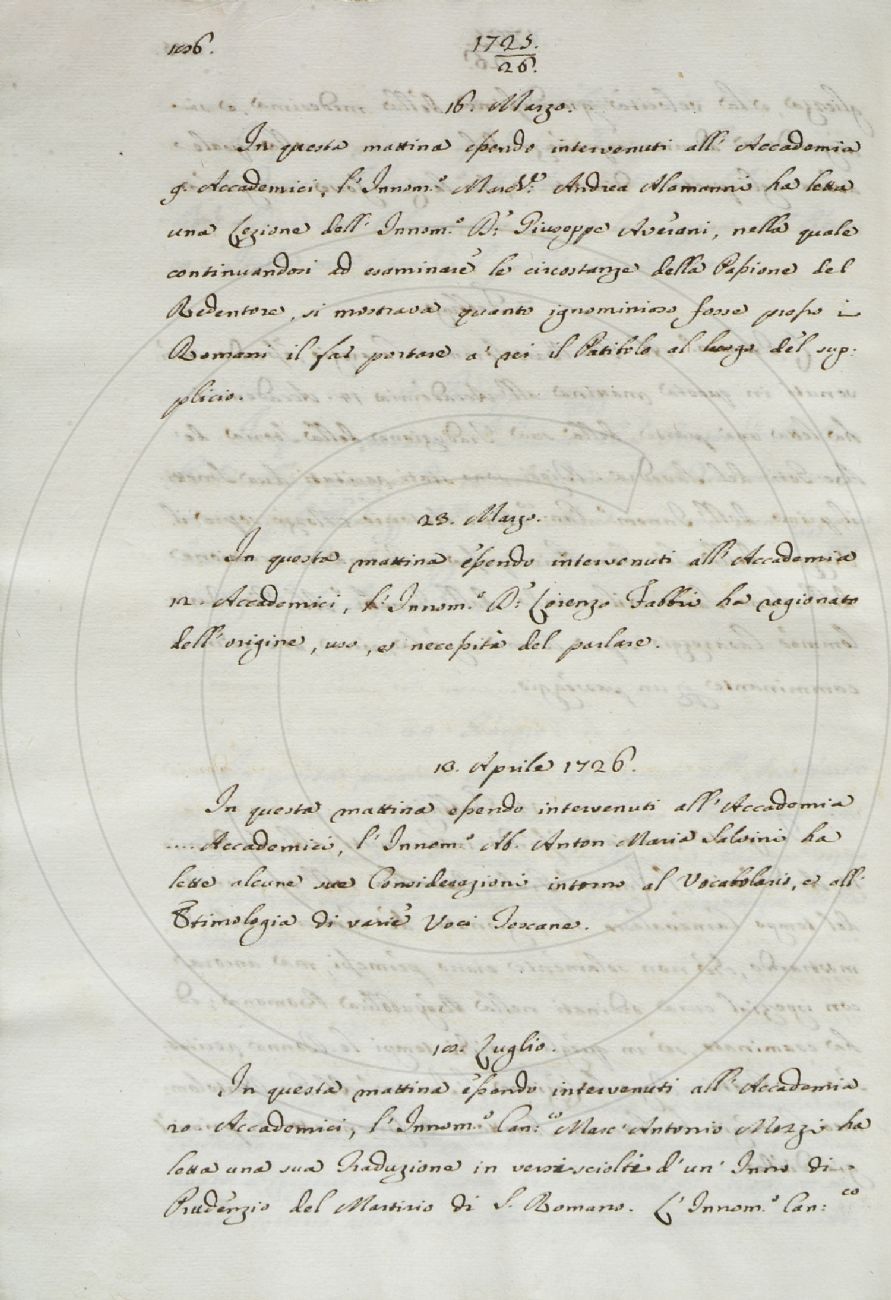 106. 1725.
26.
16. Marzo.
In questa mattina essendo intervenuti all' Accademia
9. Accademici, l' Innom.º March.e Andrea Alamanni ha letta
una Lezione dell' Innom.º D.r Giuseppe Averani, nella quale
continuandosi ad esaminare le circostanze della Passione del
Redentore, si mostrava quanto ignominioso fosse presso i
Romani il far portare a' rei il Patibolo al luogo del sup:
plicio.
23. Marzo.
In questa mattina essendo intervenuti all' Accademia
12. Accademici, l' Innom.º D.r Lorenzo Fabbri ha ragionato
dell' origine, uso, e necessità del parlare.
13. Aprile 1726.
In questa mattina essendo intervenuti all' Accademia
.... Accademici, l' Innom.º Ab. Anton Maria Salvini ha
lette alcune sue Considerazioni intorno al Vocabolario, e all'
Etimologia di varie Voci Toscane.
10. Luglio.
In questa mattina essendo intervenuti all' Accademia
20. Accademici, l' Innom.º Can:co Marc' Antonio Mozzi ha
letta una sua Traduzione in versi sciolti d' un' Inno di
Prudenzio del Martirio di S. Romano. L' Innom.º Can:co